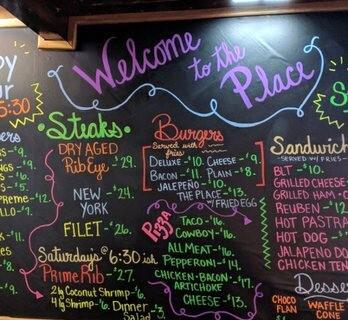 Welcome
to the
Place
Steaks
DRY AGED
Rib Eye -29.
NEW
YORK -24.
FILET -26.
Saturdays @ 6:30 ish
Prime Rib -27.
2 lg Coconut Shrimp -6.
4 lg Shrimp -6. Dinner
Salad 3.
Burgers
Served with
fries
DELUXE -10. CHEESE -9.
BACON -11. PLAIN -8.
JALEPEÑO -10.
THE PLACE -13.
w/ FRIED EGG
Pizza
TACO -16.
COWBOY -16.
ALL MEAT -16.
PEPPERONI -14.
CHICKEN-BACON -17.
ARTICHOKE
CHEESE -13.
Sandwich
SERVED W/ FRIES
BLT -10.
GRILLED CHEESE
GRILLED HAM
REUBEN -12
HOT PASTRA
HOT DOG
JALAPENO DO
CHICKEN TEN
Desse
CHOCO
FLAN
WAFFLE
CONE
5:30